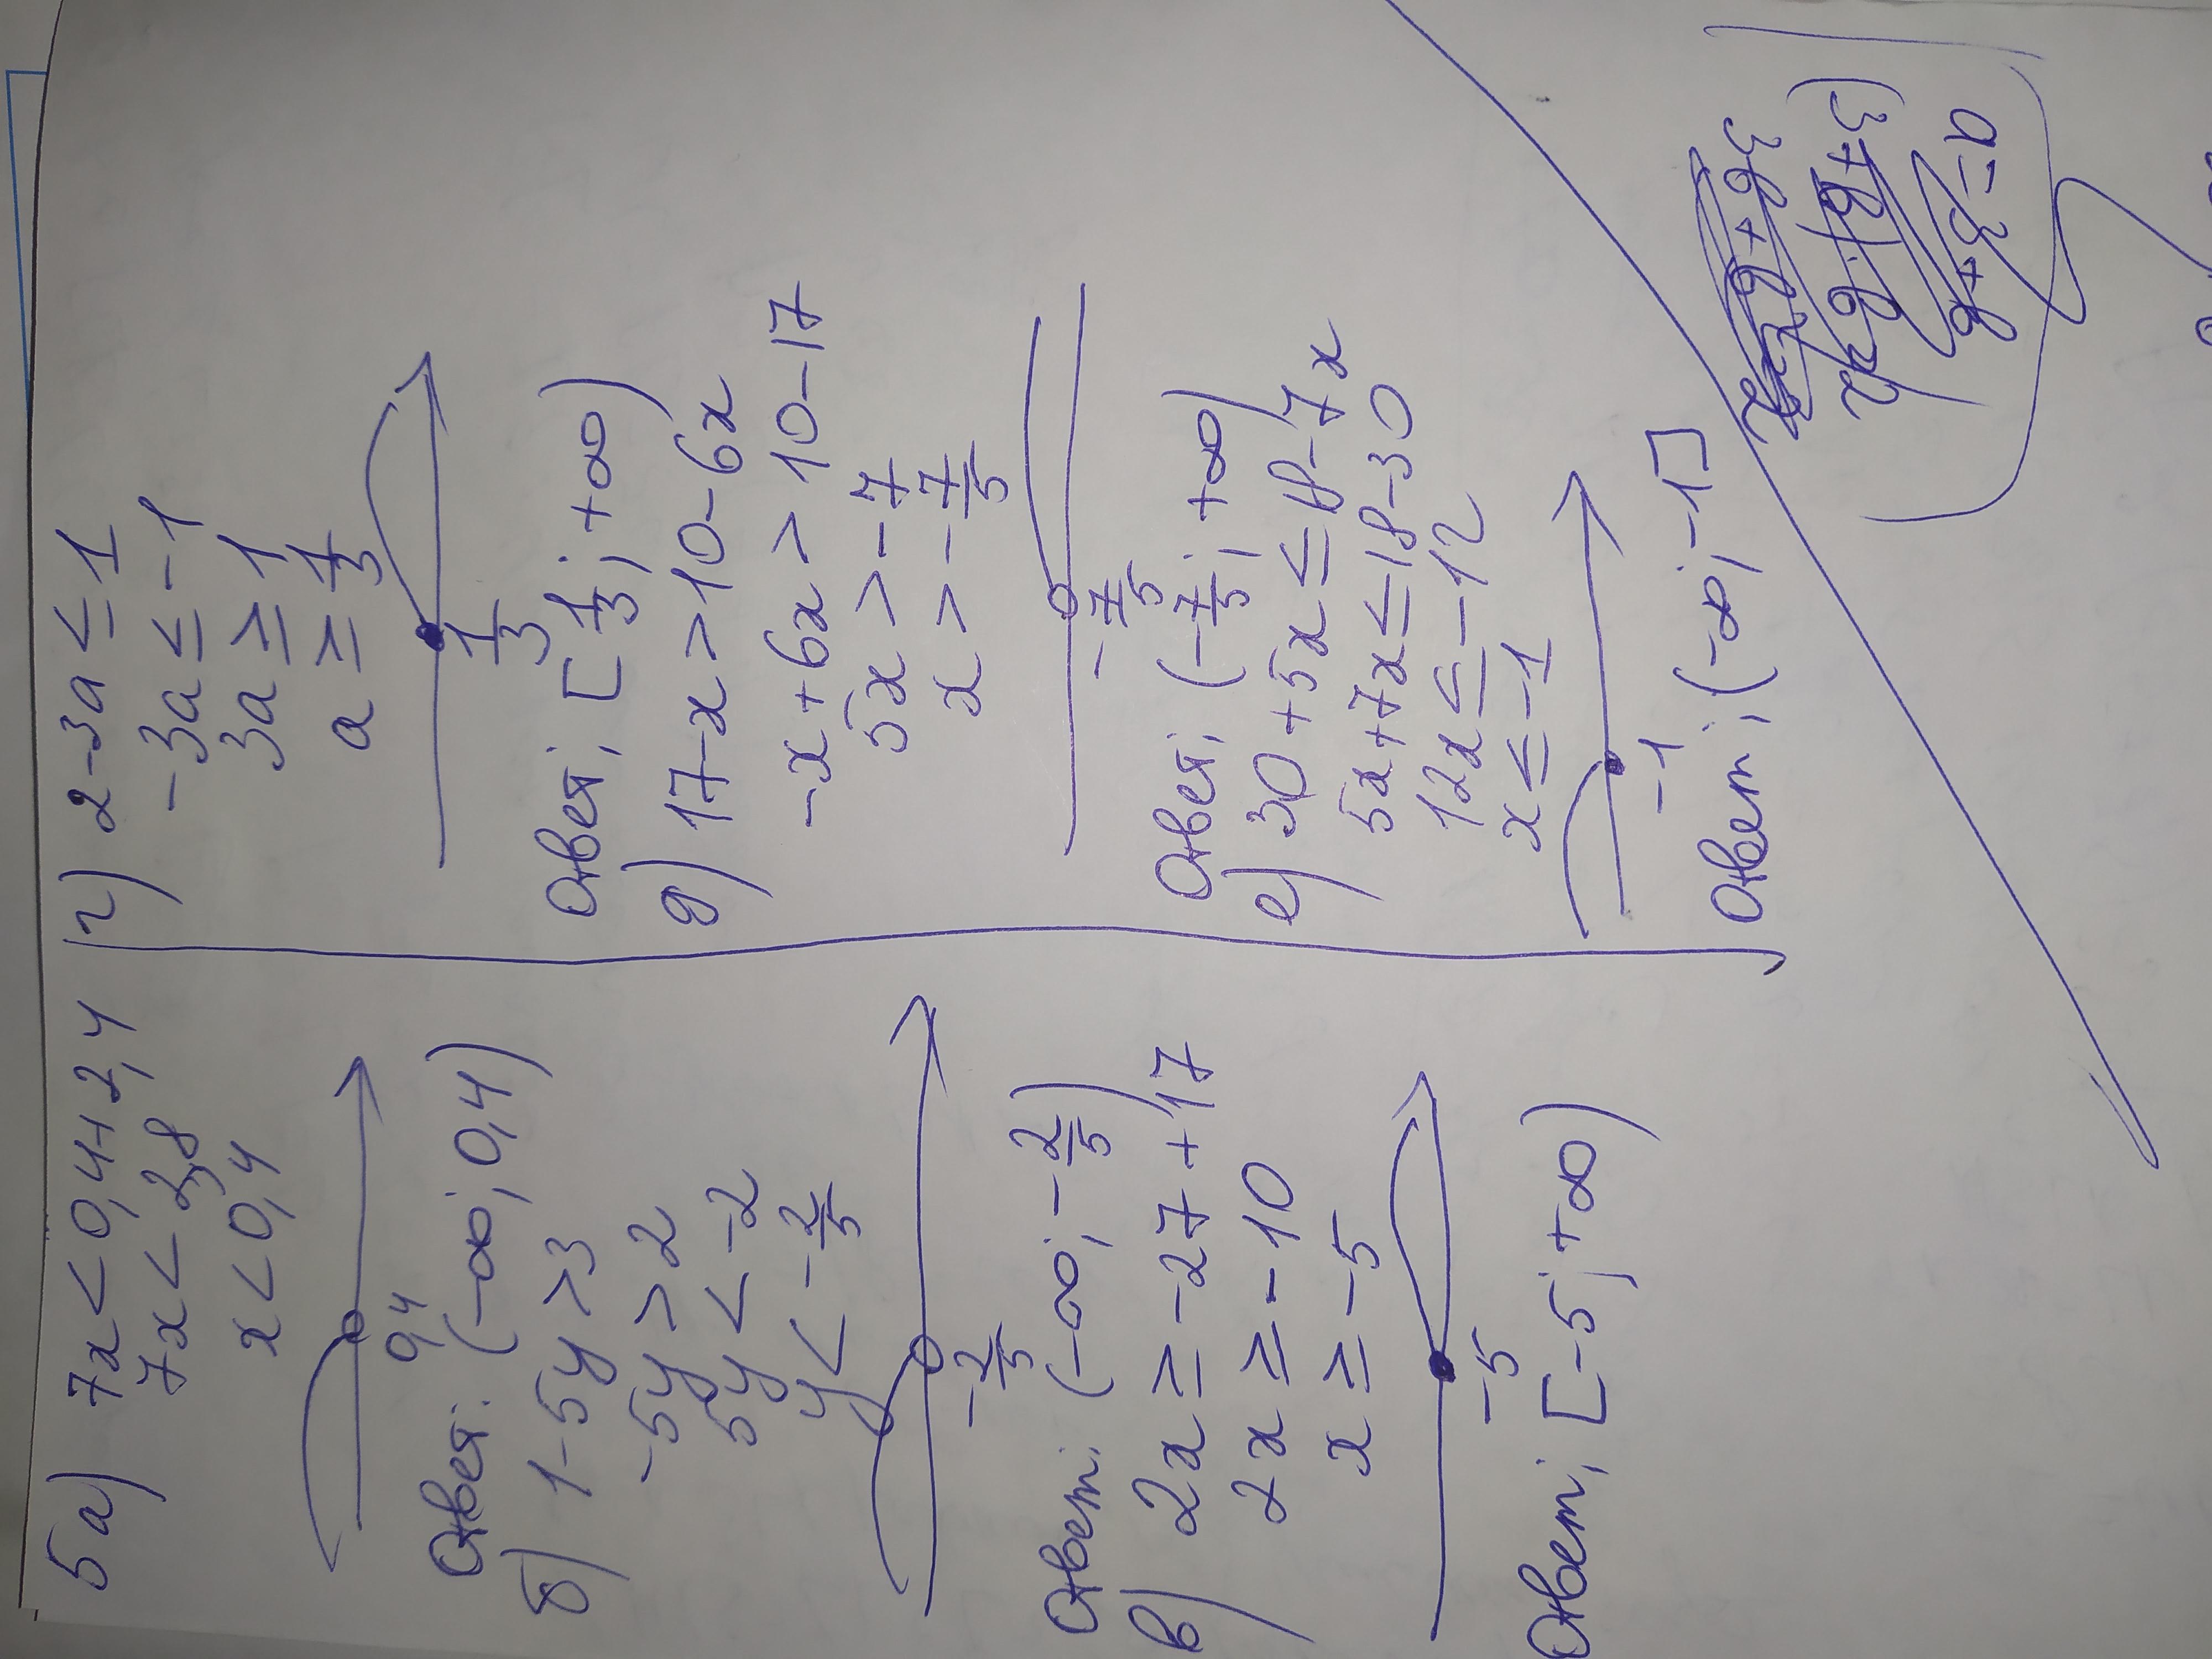 5 а) 7x < 0,4 + 2,4
7x < 2,8
x < 0,4
0,4
Ответ: (-∞; 0,4)
б) 1 - 5y > 3
-5y > 2
5y < -2
y < -2/5
-2/5
Ответ: (-∞; -2/5)
в) 2x ≥ -27 + 17
2x ≥ -10
x ≥ -5
-5
Ответ: [-5; +∞)
г) 2 - 3a ≤ 1
-3a ≤ -1
3a ≥ 1
a ≥ 1/3
1/3
Ответ: [1/3; +∞)
д) 17 - x > 10 - 6x
-x + 6x > 10 - 17
5x > -7
x > -7/5
-7/5
Ответ: (-7/5; +∞)
е) 30 + 5x ≤ 18 - 7x
5x + 7x ≤ 18 - 30
12x ≤ -12
x ≤ -1
-1
Ответ: (-∞; -1]